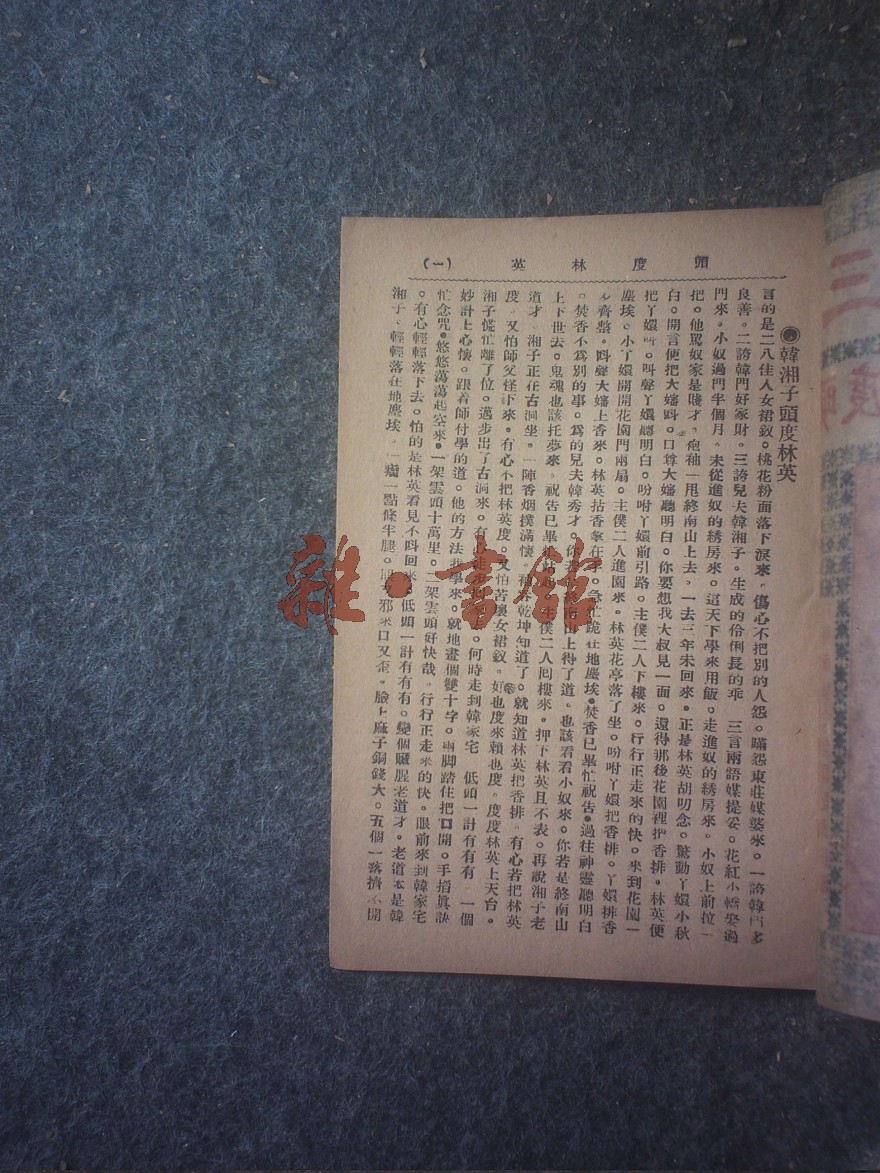 頭度林英 (一)
韓湘子頭度林英
言的是二八佳人女裙釵。桃花粉面落下淚來。傷心不把別的人怨。瞞怨東莊媒婆來。一誇韓門多
良善。二誇韓門好家財。三誇兒夫韓湘子。生成的伶俐長的乖 三言兩語媒提妥。花紅小轎娶過
門來。小奴過門半個月。未從進奴的綉房來。這天下學來用飯。走進奴的綉房來。小奴上前拉一
把。他罵奴家是賤才。袍袖一甩終南山上去。一去三年未回來。正是林英胡叨念。驚動丫嬛小秋
白。開言便把大嬸呌。口尊大嬸聽明白。你要想我大叔見一面。還得那後花園裡把香排。林英便
把丫嬛呌。呌聲丫嬛聽明白。吩咐丫嬛前引路。主僕二人下樓來。行行正走來的快。來到花園一
塵埃。小丫嬛開開花園門兩扇。主僕二人進園來。林英花亭落了坐。吩咐丫嬛把香排。丫嬛排香
多齊整。呌聲大嬸上香來。林英拈香拿在手。急忙跪在地塵埃。焚香已畢忙祝告。過往神靈聽明白
。焚香不爲別的事。爲的兒夫韓秀才。你若終南山上得了道。也該看看小奴來。你若是終南山
上下世去。鬼魂也該托夢來。祝告已畢 主僕二人囘樓來。押下林英且不表。再說湘子老
道才。湘子正在古洞坐。一陣香烟撲滿懷。 乾坤知道了。就知道林英把香排。有心若把林英
度。又怕師父怪下來。有心不把林英度。又怕苦壞女裙釵。好也度來賴也度。度度林英上天台。
湘子慌忙離了位。邁步出了古洞來。有 何時走到韓家宅 低頭一計有有有 一個
妙計上心懷。跟着師付學的道。他的方法我學來。就地畫個雙十字。兩脚踏住把口開。手掐眞訣
忙念咒。悠悠蕩蕩起空來。一架雲頭十萬里。二架雲頭好快哉。行行正走來的快。眼前來到韓家宅
。有心輕輕落下去。怕的是林英看見不呌回來。低頭一計有有有。變個臟腥老道才。老道本是韓
湘子。輕輕落在地塵埃。一瘸一點條半腿。 邪來口又歪。臉上麻子銅錢大。五個一落擠不開
雜·書館